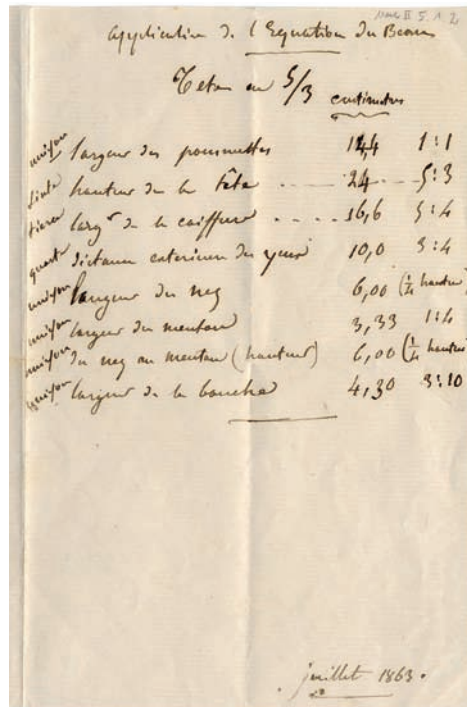 application de l'Equation du Beau
Tetes en 5/3
centimetres
unisson largeur des pommettes 14,4 1:1
sixte hauteur de la tête 24 5:3
tierce largr de la coiffure 16,6 5:4
quarte distance exterieure des yeux 10,0 3:4
unisson longueur du nez 6,00 (¼ hauteur)
unisson largeur du menton 3,33 1:4
unisson du nez au menton (hauteur) 6,00 (¼ hauteur)
unisson largeur de la bouche 4,30 3:10
juillet 1863.